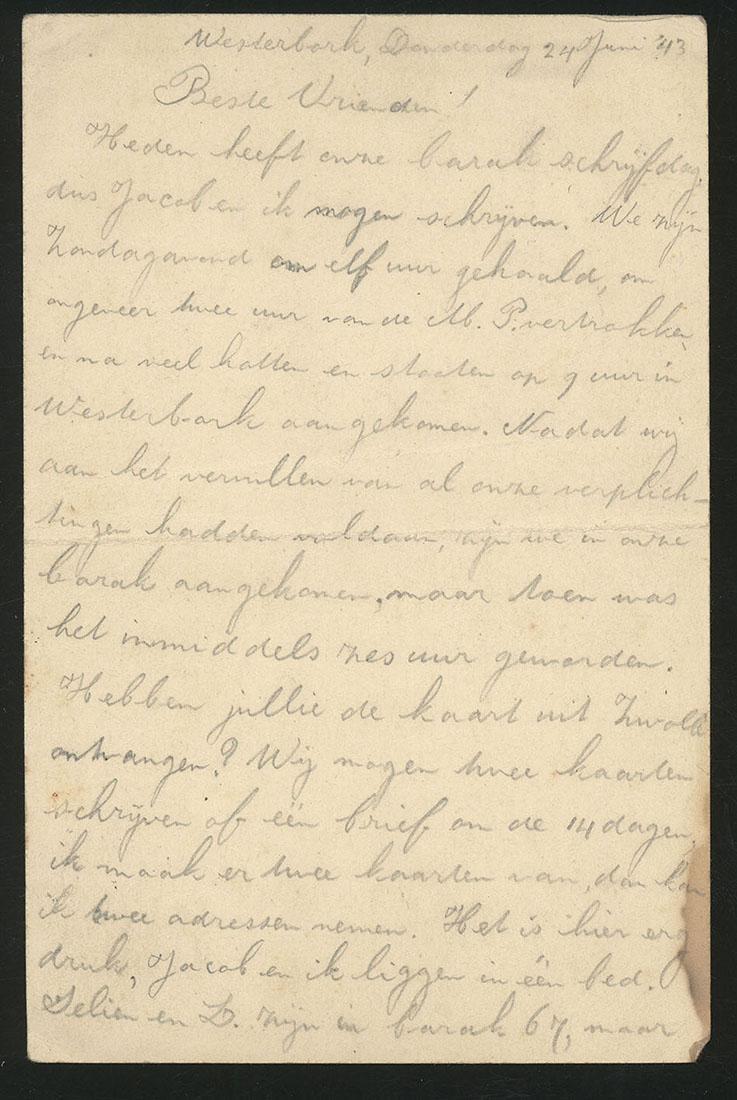 Westerbork, Donderdag 24 Juni '43
Beste Vrienden!
Heden heeft onze barak schrijfdag,
dus Jacob en ik mogen schrijven. We zijn
Zondagavond om elf uur gehaald, om
ongeveer twee uur van de M. P. vertrokken
en na veel hotten en stooten op 9 uur in
Westerbork aangekomen. Nadat wij
aan het vervullen van al onze verplich-
tingen hadden voldaan, zijn we in onze
barak aangekomen, maar toen was
het inmiddels zes uur geworden.
Hebben jullie de kaart uit Zwolle
ontvangen? Wij mogen twee kaarten
schrijven of één brief om de 14 dagen,
ik maak er twee kaarten van, dan kan
ik twee adressen nemen. Het is hier erg
druk, Jacob en ik liggen in één bed.
en D. zijn in barak 67, maar